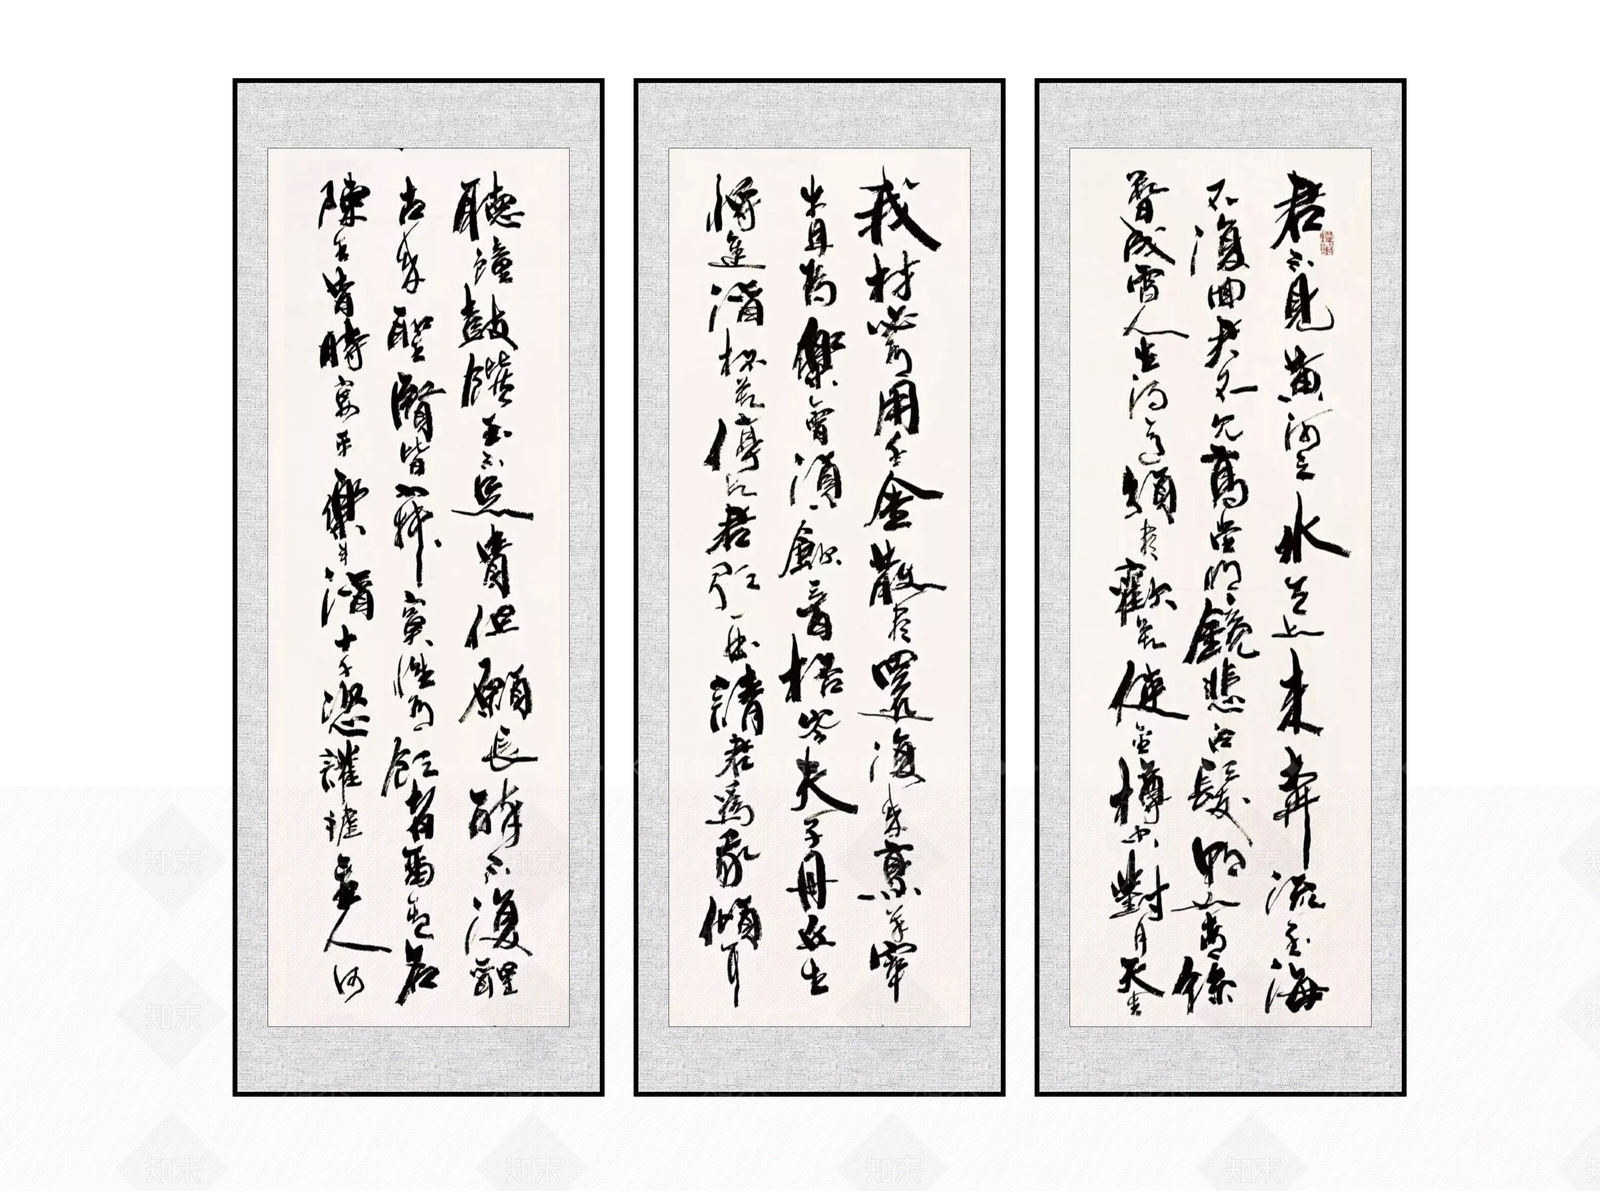 君不見黃河之水天上来奔流至海
不復回君不見高堂明鏡悲白髮朝如青絲
暮成雪人生得意須盡歡莫使金樽空對月天生
我材必有用千金散盡還復来烹羊宰
牛且為樂會須一飲三百杯岑夫子丹丘生
將進酒杯莫停與君歌一曲請君為我傾耳
聽鐘鼓饌玉不足貴但願長醉不復醒
古来聖賢皆寂寞惟有飲者留其名
陳王昔時宴平樂斗酒十千恣讙謔主人何
知末